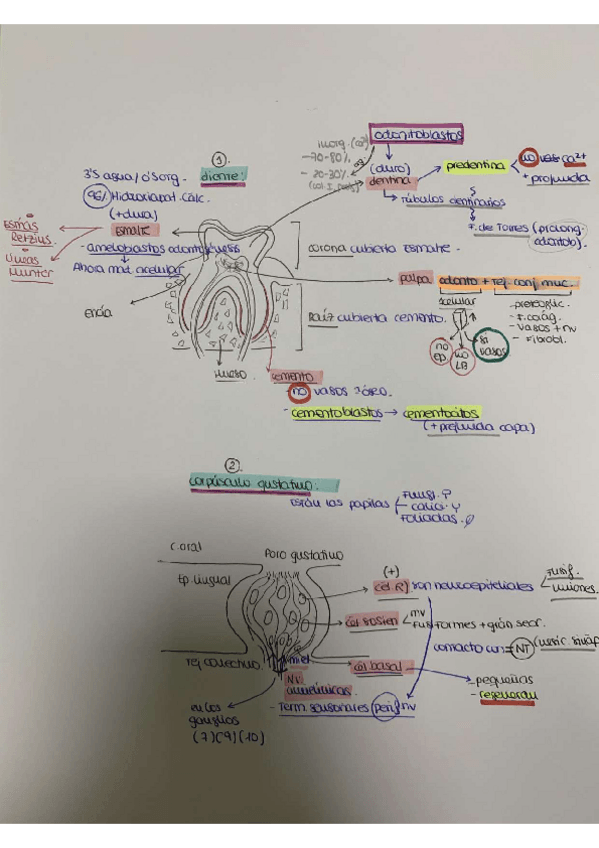 odontoblastos
inorg. (Ca²)
70-80%
20-30%
(col. I, prots)
(duro)
dentina
predentina
no vasos Ca²⁺
+ profunda
túbulos dentinarios
F. de Tomes (prolong. odontob).
1.
diente:
3'5 agua / 0'5 org.
96% Hidroxiapat. Calc.
(+ dura)
Esmalte
Estrías Retzius.
Líneas Hunter
- ameloblastos
Ahora mat. acelular
corona cubierta Esmalte.
pulpa odonto + tej. conj. muc.
acelular
no EP
no LB
si vasos
- F. colág.
- vasos + nv
- Fibrobl.
Encía
Raíz cubierta cemento.
Hueso
cemento
- no vasos
- cementoblastos → cementocitos
(+ profunda capa)
2.
corpúsculo gustativo:
Están las papilas
Fungi.
Calic.
Foliadas.
C. oral
Poro gustativo
Ep. lingual
(+)
Cel R) son neuroepiteliales
Fusif.
Uniones.
Cél sostén
mv
fusiformes + grán secr.
contacto con = NT
Tej conectivo
Cél basal
- pequeñas
- regeneran
NV
amielínicas
- Term. sensoriales (perif) nv
en los ganglios
(7) (9) (10)